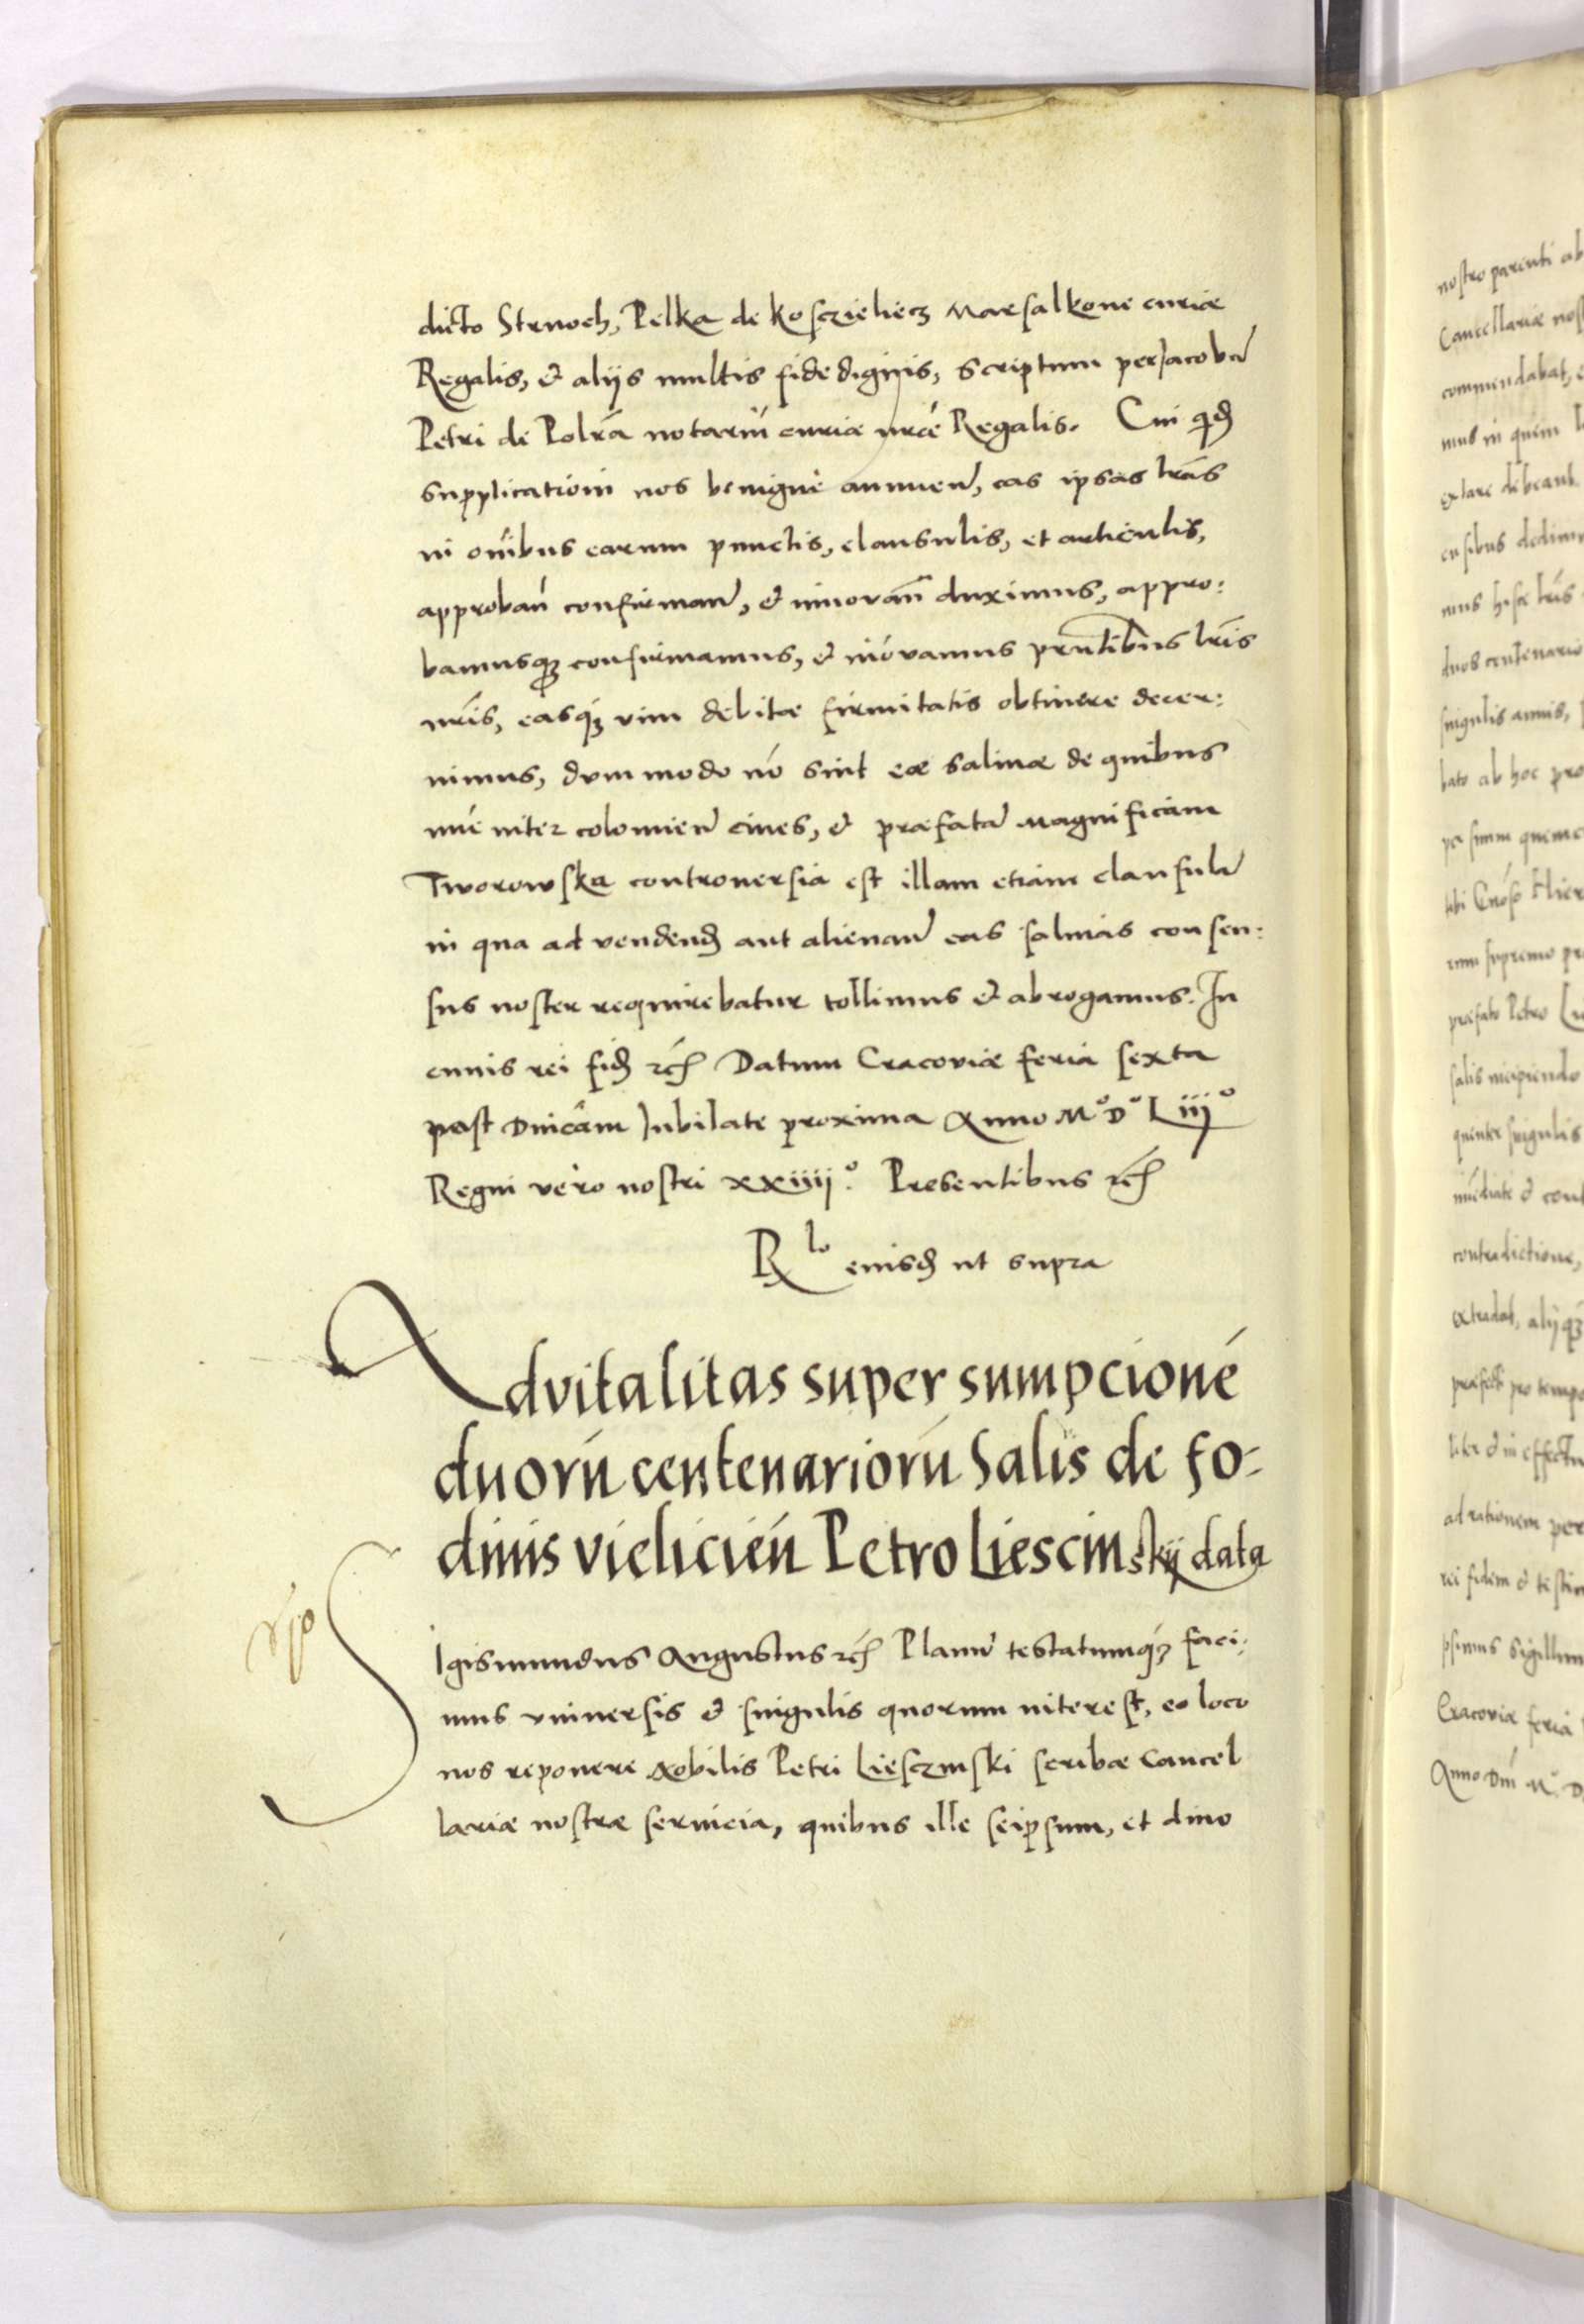 dicto Strnoch, Pelka de Kosczieliecz Marsalkone curiæ
Regalis, & alijs multis fide dignis, scriptum per Jacobũ
Petri de Polrã notariũ curiæ nrãe Regalis. Cui qd
supplicationi nos benigne annuen, eas ipsas lrãs
in oĩbus earum punctis, clausulis, et articulis,
approbañ confirman, & innorañ duximus, appro:
bamusq₃ confirmamus, & iñovamus prñtibus lrĩs
nrĩs, easq₃ vim debitæ firmitatis obtinere decer:
nimus, dummodo nõ sint eæ salinæ de quibus
nũc inter colomien ciues, & præfatã Magnificam
Tworowska controuersia est illam etiam clausulã
in qua ad vendend aut alienan eas salinas consen:
sus noster requirebatur tollimus & abrogamus. In
cuius rei fid ꝛc̃ Datum Cracoviæ feria sexta
post Dnicam Jubilate proxima Anno M° D° Liij°
Regni vero nostri xxiiij°. Presentibus ꝛc̃
Rlo eiusd ut supra
Advitalitas super sumpcionẽ
duorũ centenariorũ Salis de fo-
dinis vielicieñ Petro Liescinskij data
Sigismundus Augustus ꝛc̃ Planũ testatumq₃ faci:
mus vniuersis & singulis quorum interest, eo loco
nos reponere Nobilis Petri Liesczinski scribæ Cancel
lariæ nostræ seruicia, quibus ille seipsum, et diuo
nostro parenti ab
Cancellariæ nos
commendabat, &
mus in quem
extare debeant
ensibus dedim
mus hisce lrĩs
duos centenario
singulis annis,
bato ab hoc pro
per suum quemc
tibi Hier
rum supremo pr
præfato Petro
salis incipiendo
quenter singulis
imediate & cont
contradictione,
extradat, alijq₃
præfecti pro tempo
liter & in effectu
ad rationem per
rei fidem & testim
pssimus sigillum
Cracoviæ feria
Anno Dni M° D